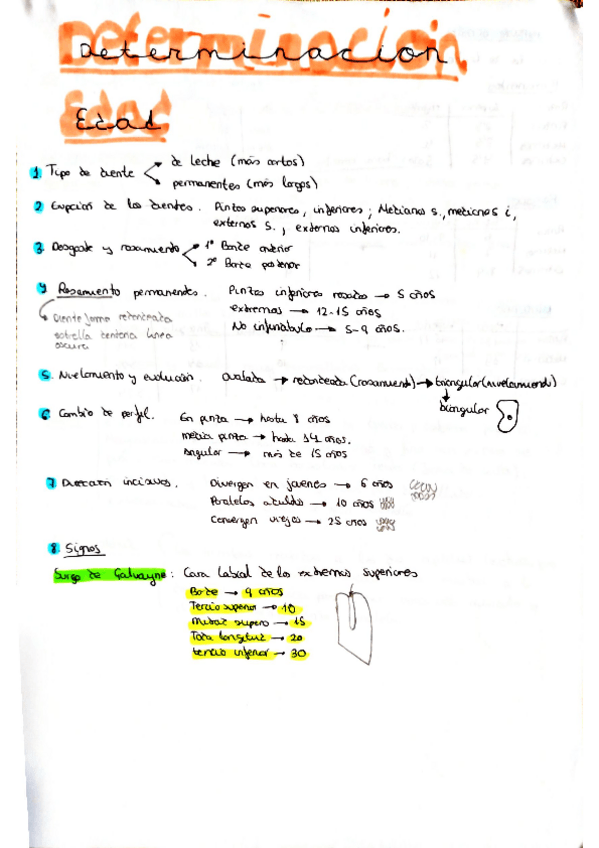 Determinación
Edad
1. Tipo de diente de leche (más cortos)
permanentes (más largos)
2. Erupción de los dientes. Pintos superiores, inferiores; Medianos s., medianos i,
externos s., externos inferiores.
3. Desgaste y rasamiento 1º Borde anterior
2º Borde posterior
4 Rasamiento permanentes. Pintos inferiores rasados → 5 años
extremos → 12-15 años
No infundíbulo → 5-9 años.
Diente forma redondeada
estrella dentaria linea
oscura
5. Nivelamiento y evolución. ovalada → redondeada (rasamiento) → triangular (nivelamiento)
↓
biangular
6. Cambio de perfil. En pinza → hasta 8 años
media pinza → hasta 14 años.
Angular → más de 15 años
7. Dirección incisivos. Divergen en jovenes → 6 años
Paralelos adultos → 10 años
Convergen viejos → 25 años
8. Signos
Surco de Galvayne: Cara labial de los extremos superiores
Borde → 9 años
Tercio superior → 10
Mitad supero → 15
Toda longitud → 20
tercio inferior → 30